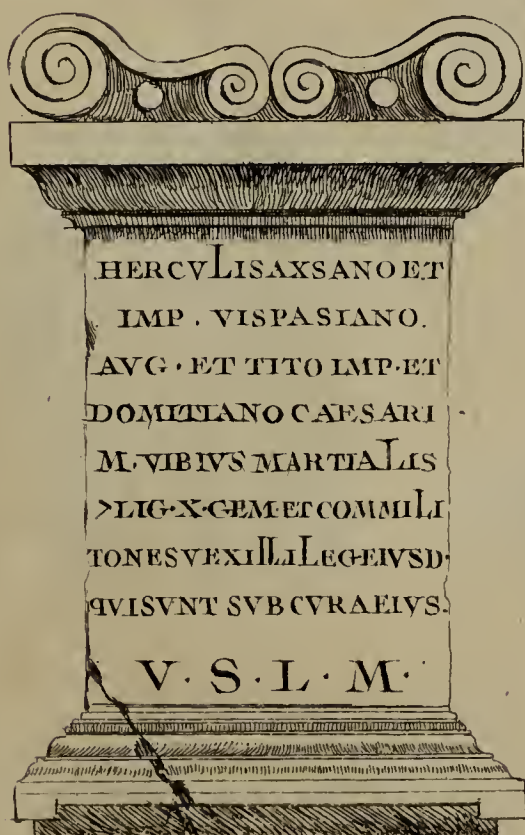 HERCVLISAXSANO ET
IMP . VISPASIANO.
AVG · ET TITO IMP · ET
DOMITIANO CAESARI
M · VIBIVS MARTIALIS
>LIG · X · GEM · ET COMMILI
TONES VEXILLI LEG · EIVSD ·
QVISVNT SVB CVRAEIVS.
V · S · L · M ·